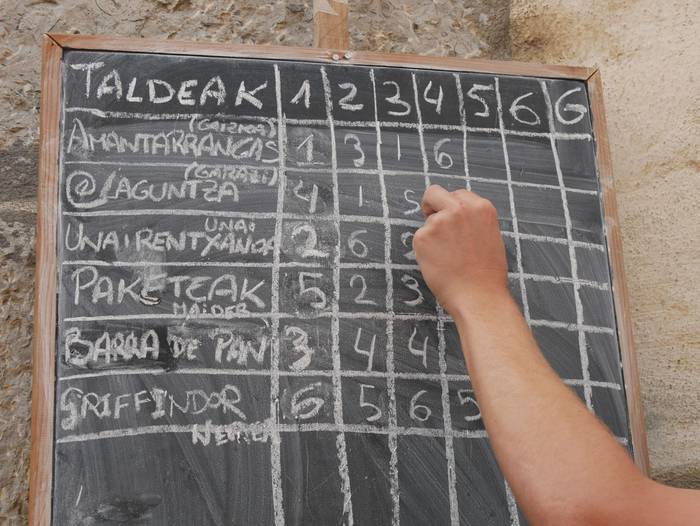 TALDEAK 1 2 3 4 5 6 G
(GAIZKA)
AMANTARRANGAS 1 3 1 6
(GARAZI)
@LAGUNTZA 4 1 5
UNAI
UNAIRENTXANDA 2 6
PAKETEAK 5 2 3
MAIDER
BARRA DE PAN 3 4 4
GRIFFINDOR 6 5 6 5
NEREA